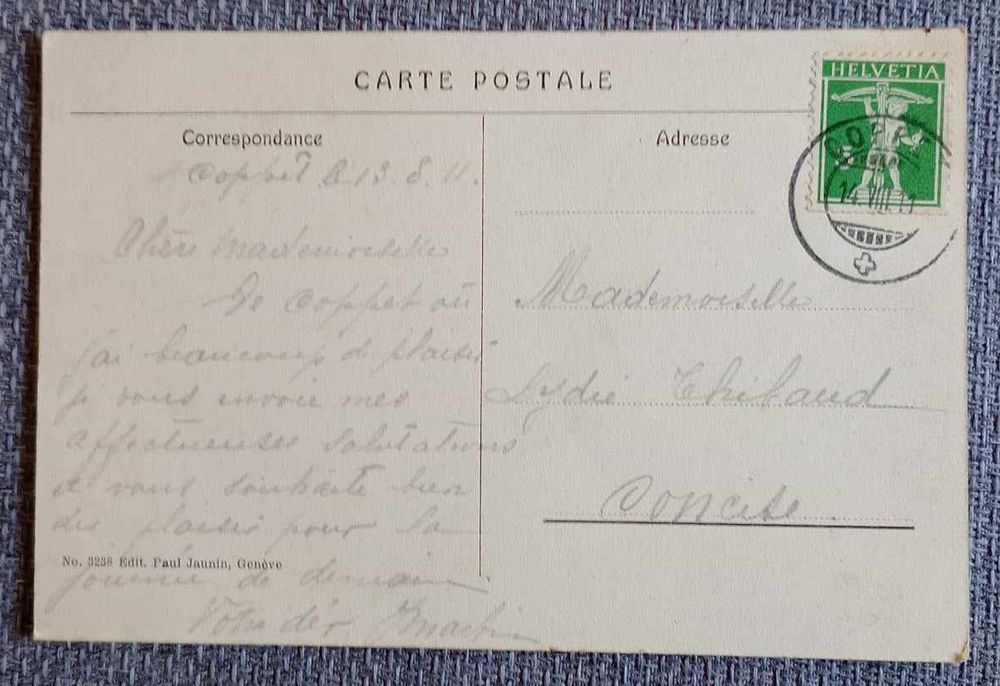 CARTE POSTALE
HELVETIA
Correspondance
Adresse
Coppet le 13.8.11.
14.VIII.11
Chère Mademoiselle
De Coppet où
j'ai beaucoup de plaisir
je vous envoie mes
affectueuses salutations
et vous souhaite bien
du plaisir pour la
No. 3238 Edit. Paul Jaunin, Genève
journée de demain
Votre
Mademoiselle
Lydie Thibaud
Concise